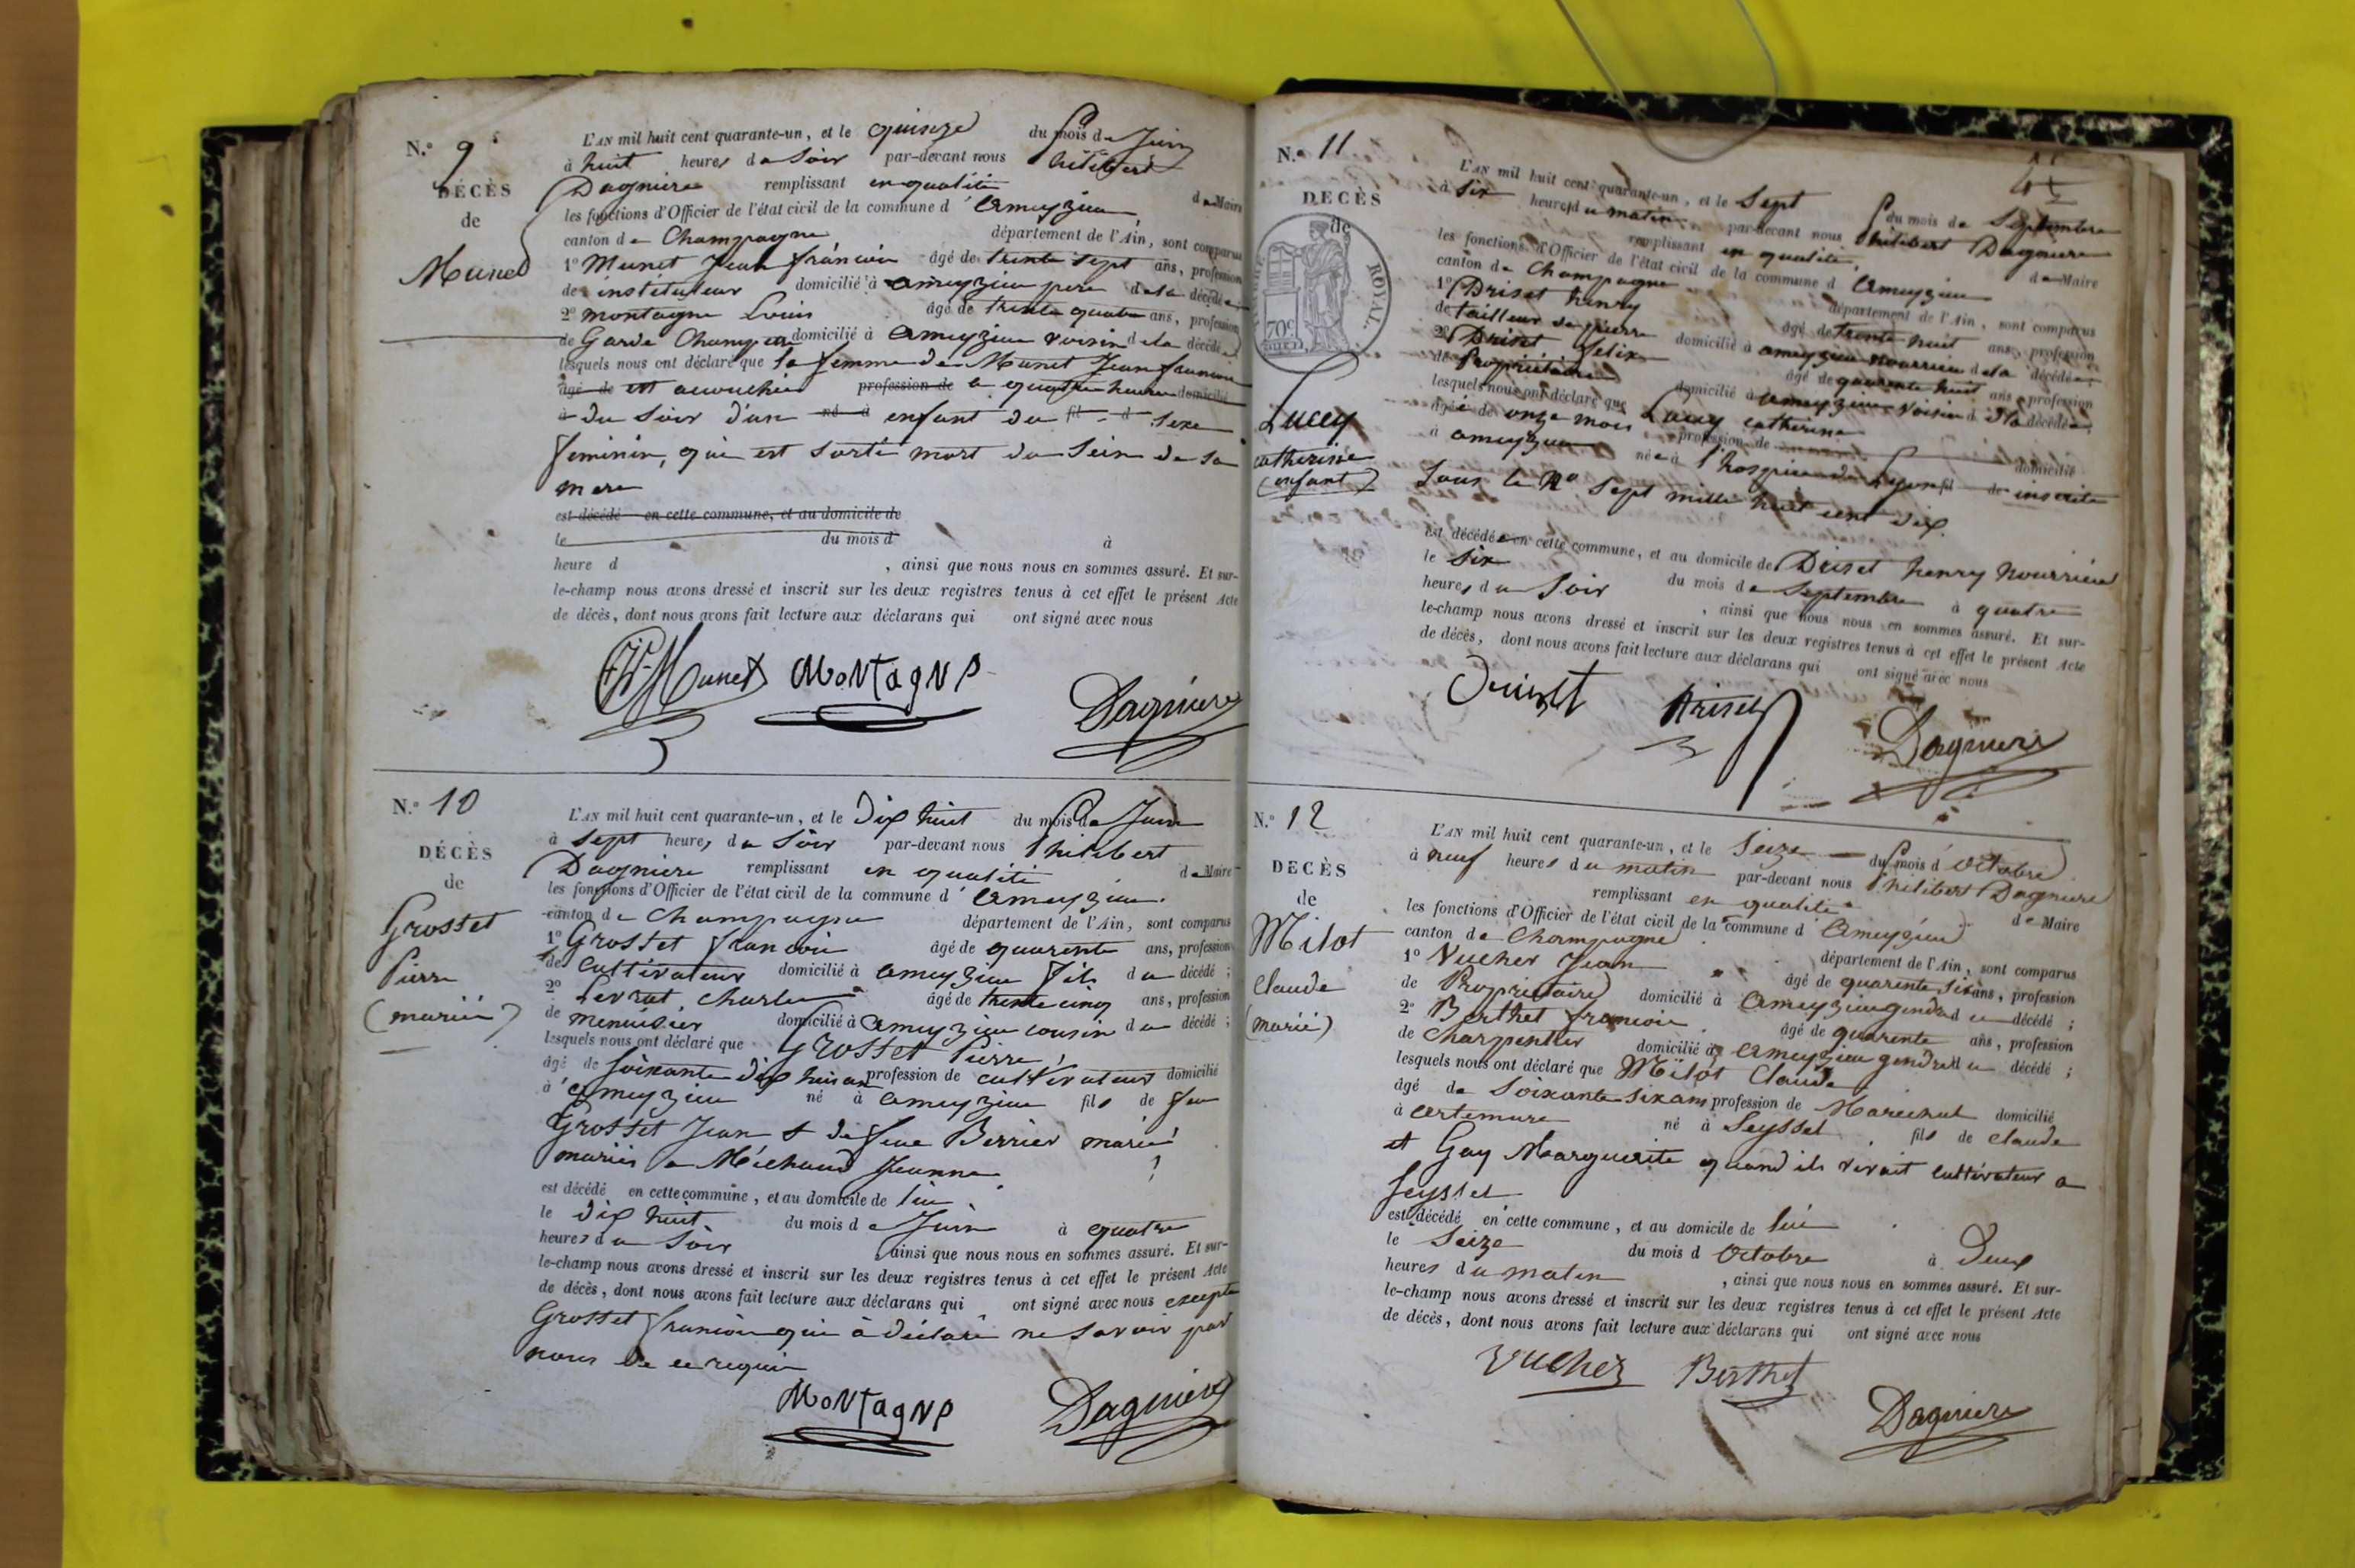 N.° 9
DÉCÈS
de
Munet
L'AN mil huit cent quarante-un, et le quinze du mois de Juin
à huit heures du Soir par-devant nous Philibert
Dagniere remplissant en qualité de Maire
les fonctions d'Officier de l'état civil de la commune d'ameyzieu
canton de Champagne département de l'Ain, sont comparus
1° Munet Jean françois âgé de trente sept ans, profession
de instituteur domicilié à ameyzieu pere de la décédée
2° montagne Louis âgé de trente quatre ans, profession
de Garde Champetre domicilié à ameyzieu voisin de la décédée
lesquels nous ont déclaré que la femme de Munet Jean francois
âgé de est accouchée profession de a quatre heures domicilié
à du Soir d'un né à enfant du fil d sexe
feminin, qui est sorti mort du Sein de sa
mere
est décédé en cette commune, et au domicile de
le du mois d à
heure d , ainsi que nous nous en sommes assuré. Et sur-
le-champ nous avons dressé et inscrit sur les deux registres tenus à cet effet le présent Acte
de décès, dont nous avons fait lecture aux déclarans qui ont signé avec nous
Munet MoNTagNe
Dagniere
N.° 10
DÉCÈS
de
Grosset
Pierre
(marié)
L'AN mil huit cent quarante-un, et le Dix huit du mois de Juin
à Sept heures du Soir par-devant nous Philibert
Dagniere remplissant en qualité de Maire
les fonctions d'Officier de l'état civil de la commune d'ameyzieu.
canton de Champagne département de l'Ain, sont comparus
1° Grosset francois âgé de quarente ans, profession
de Cultivateur domicilié à ameyzieu fils du décédé ;
2° Charles âgé de trente cinq ans, profession
de menuisier domicilié à ameyzieu cousin du décédé ;
lesquels nous ont déclaré que Grosset Pierre
âgé de soixante dix huit ans profession de cultivateur domicilié
à ameyzieu né à ameyzieu fils de feu
Grosset Jean & de feue Berrier marié
mariés a Michaud Jeanne
est décédé en cette commune, et au domicile de lui
le dix huit du mois de Juin à quatre
heures du Soir ainsi que nous nous en sommes assuré. Et sur-
le-champ nous avons dressé et inscrit sur les deux registres tenus à cet effet le présent Acte
de décès, dont nous avons fait lecture aux déclarans qui ont signé avec nous excepté
Grosset francois qui à déclaré ne Savoir par
nous de ce requis
MoNTagNe Dagniere
N.° 11
DECÈS
de
ROYAL.
70c
Lucey
catherine
(enfant)
L'AN mil huit cent quarante-un, et le Sept du mois de Septembre
à Six heures du matin par-devant nous Philibert Dagniere
remplissant en qualité de Maire
les fonctions d'Officier de l'état civil de la commune d'ameyzieu
canton de Champagne département de l'Ain, sont comparus
1° Driset henry âgé de trente huit ans, profession
de tailleur de pierre domicilié à ameyzieu nourricier de la décédée ;
2° Driset felix âgé de quarente huit ans, profession
de Propriétaire domicilié à ameyzieu voisin de la décédée ;
lesquels nous ont déclaré que Lucey catherine
âgée de onze mois profession de domicilié
à ameyzieu née à l'hospice de Lyon fil de inscrite
Sous le N° Sept mille huit cent dix
est décédée en cette commune, et au domicile de Driset henry nourricier
le Six du mois de Septembre à quatre
heures du Soir , ainsi que nous nous en sommes assuré. Et sur-
le-champ nous avons dressé et inscrit sur les deux registres tenus à cet effet le présent Acte
de décès, dont nous avons fait lecture aux déclarans qui ont signé avec nous
Driset Driset
Dagniere
N.° 12
DECÈS
de
Milot
Claude
(marié)
L'AN mil huit cent quarante-un, et le Seize du mois d'Octobre
à neuf heures du matin par-devant nous Philibert Dagniere
remplissant en qualité de Maire
les fonctions d'Officier de l'état civil de la commune d'ameyzieu
canton de Champagne département de l'Ain, sont comparus
1° Vucher Jean âgé de quarente six ans, profession
de Propriétaire domicilié à ameyzieu gendre du décédé ;
2° Berthet francois âgé de quarente ans, profession
de Charpentier domicilié à ameyzieu gendre du décédé ;
lesquels nous ont déclaré que Milot Claude
âgé de Soixante Six ans profession de Marechal domicilié
à artemare né à Seyssel fils de claude
et Gay Marguerite quand ils vivait cultivateur a
Seyssel
est décédé en cette commune, et au domicile de lui
le Seize du mois d Octobre à Deux
heures du matin , ainsi que nous nous en sommes assuré. Et sur-
le-champ nous avons dressé et inscrit sur les deux registres tenus à cet effet le présent Acte
de décès, dont nous avons fait lecture aux déclarans qui ont signé avec nous
Vucher Berthet
Dagniere